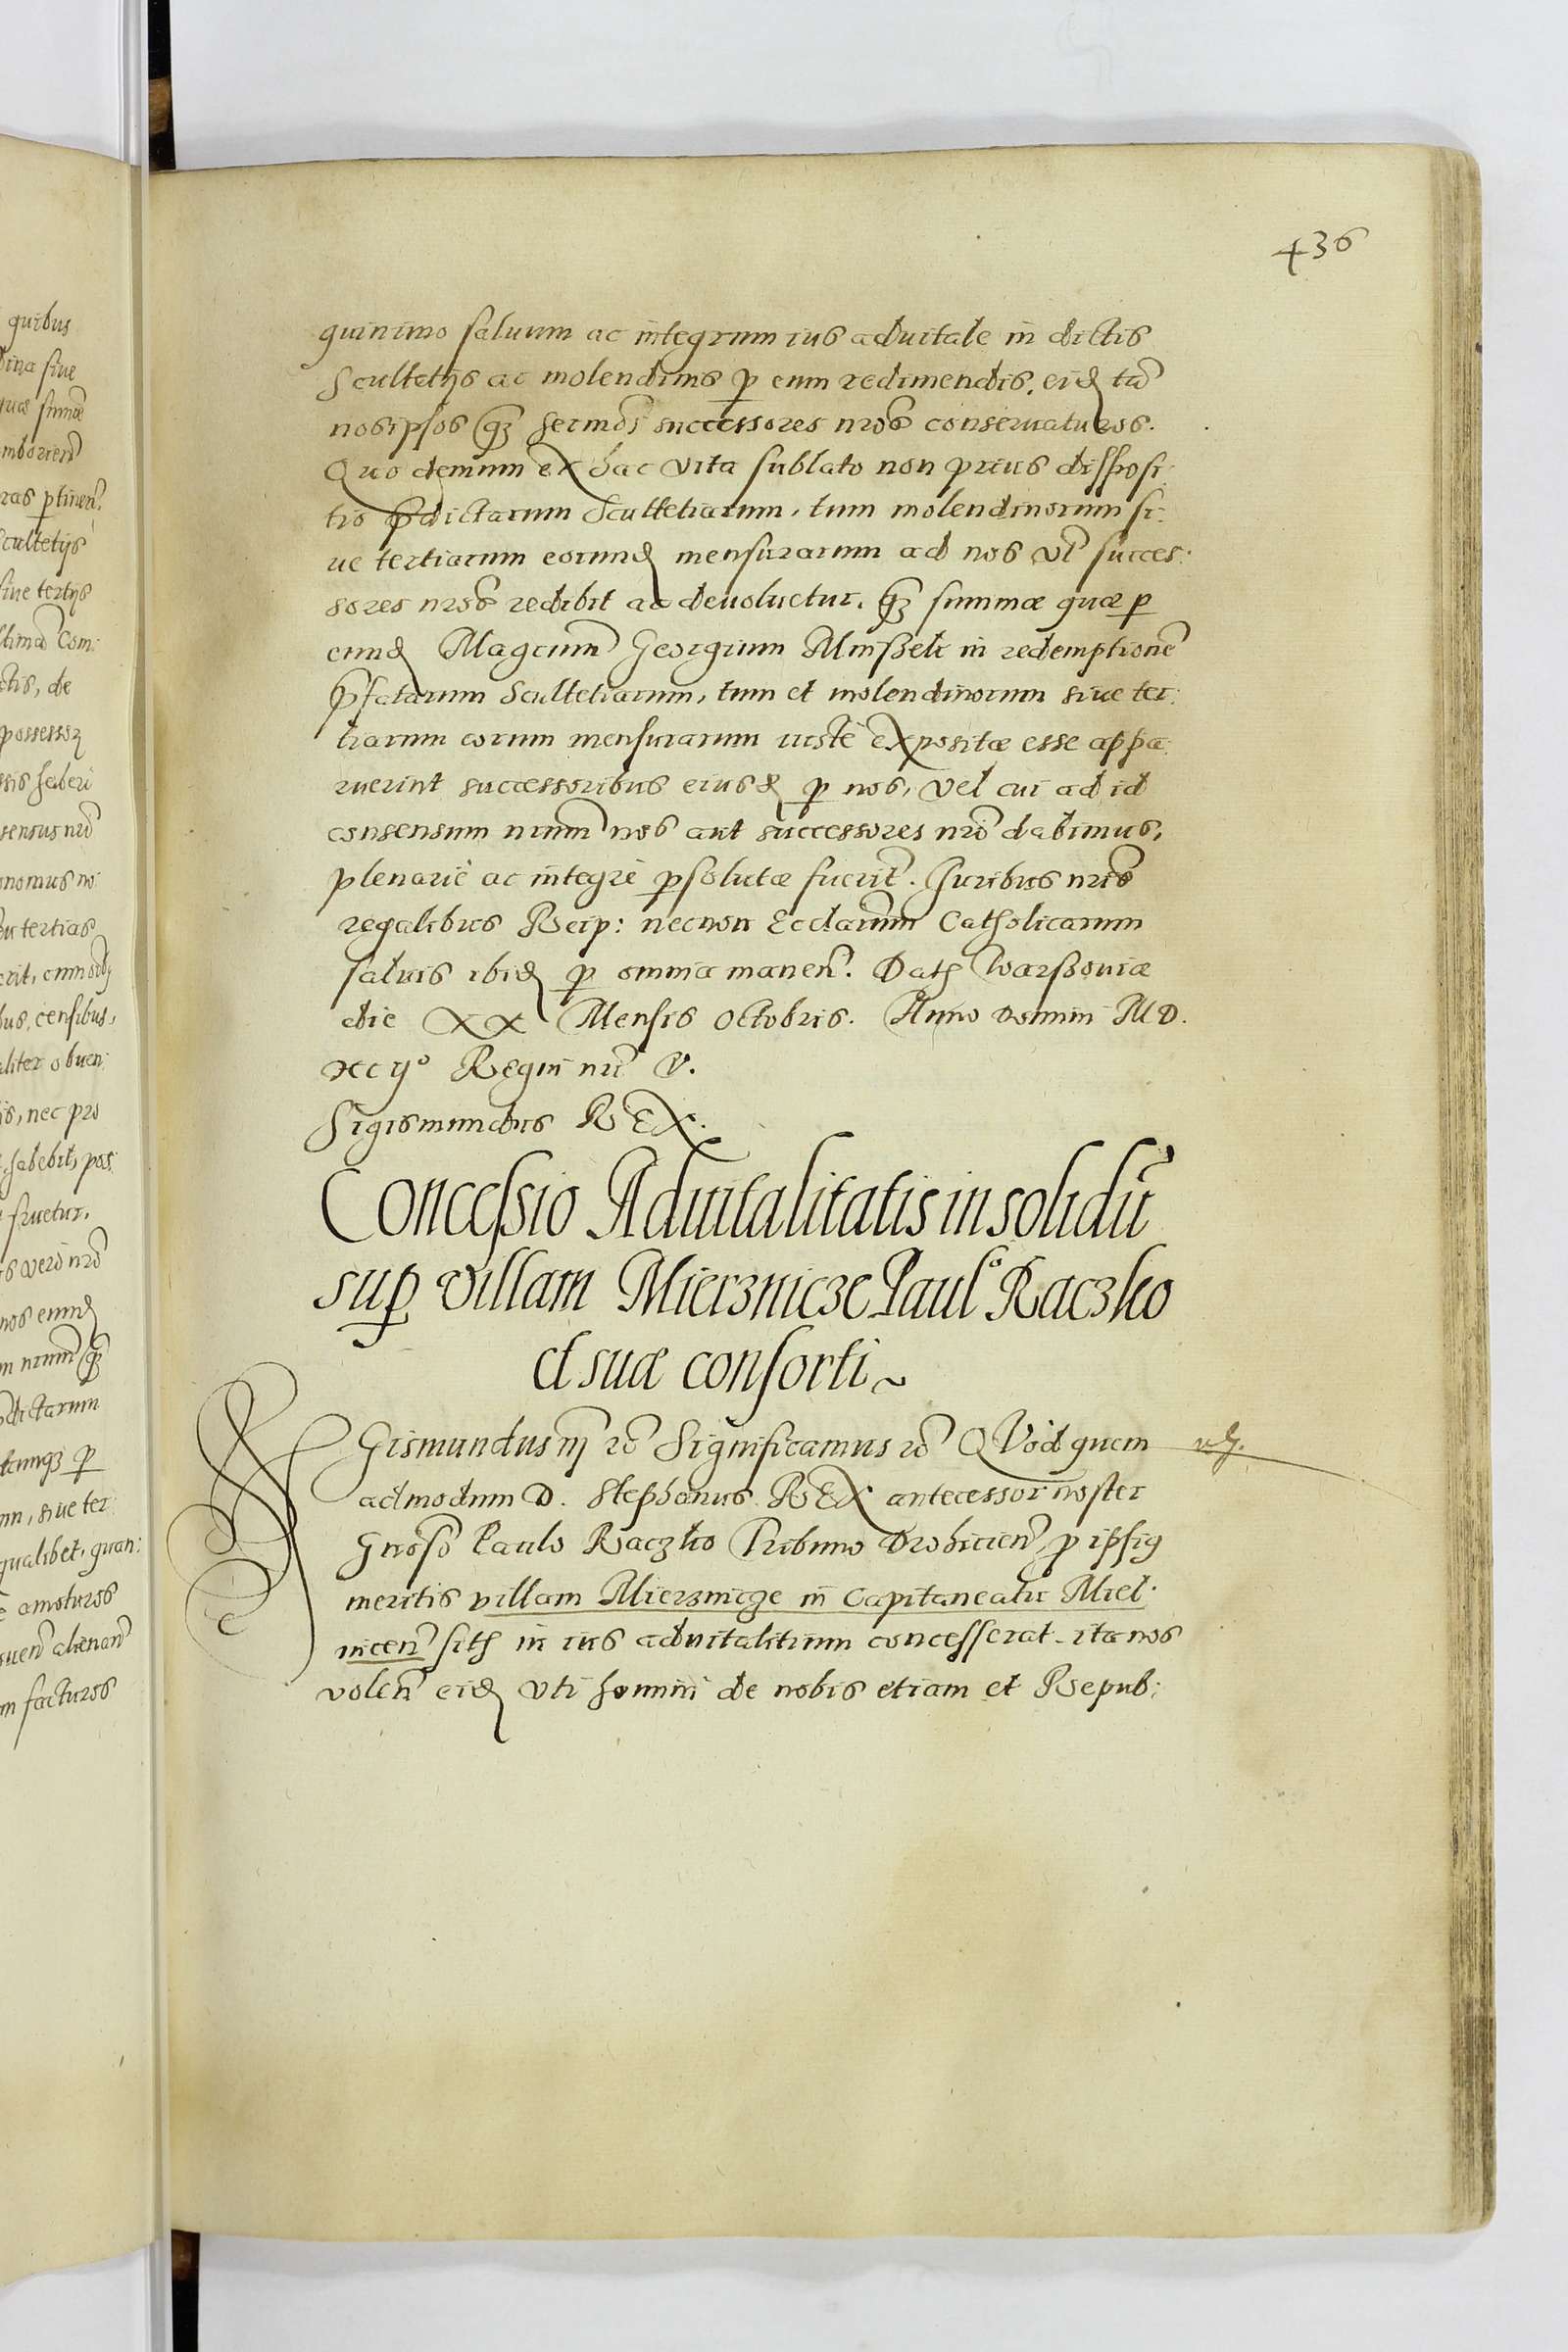 436
quinimo saluum ac integrum ius aduitale in dictis
Scultetijs ac molendinis p eum redimendis, eid tū
nosipsos qz sermos successores nros conseruaturos.
Quo demum ex hac vita sublato non prius disposi:
tio pdictarum Scultetiarum, tum molendinorum si:
ue tertiarum eorund mensurarum ad nos vl succes:
sores nros redibit ac deuoluetur, qz summæ quæ p
eund Magcum Georgium Mnißek in redemptionē
pfatarum Scultetiarum, tum et molendinorum siue ter:
tiarum eorum mensurarum iustè expositæ esse appa:
ruerint successoribus eiusd p nos, vel cui ad id
consensum nrum nos aut successores nri dabimus,
plenariè ac integrè psolutæ fuerit. Iuribus nris
regalibus Reip: necnon Ecclarum Catholicarum
saluis ibid p omnia manen. Dat Warßouiæ
die XX Mensis Octobris. Anno Domini M D.
xcij° Regni nri V.
Sigismundus REX.
Concessio Aduitalitatis in solidū
sup villam Mierznicze Paul° Raczko
et suæ consorti
Gismundus iij rc Significamus rc QVod quem
admodum D. Stephanus REX antecessor noster
Gnoso Paulo Raczko Tribuno Drohicien p ipsius
meritis villam Mierznicze in Capitaneatu Miel:
nicen sit in ius aduitalitium concesserat ita nos
volen eid vti homini de nobis etiam et Repub:
quibus
siue
summæ
ras ptinen
Scultetijs
siue tertijs
Com:
ctis, de
possessor
haberi
sensus nri
nomus no
tertias
bus, censibus,
aliter obuen:
is, nec pro
habebit, pos:
fruetur.
vero nro
nos eund
nrum qz
dictarum
p
siue ter
qualibet, quan:
amoturos
alienan
facturos